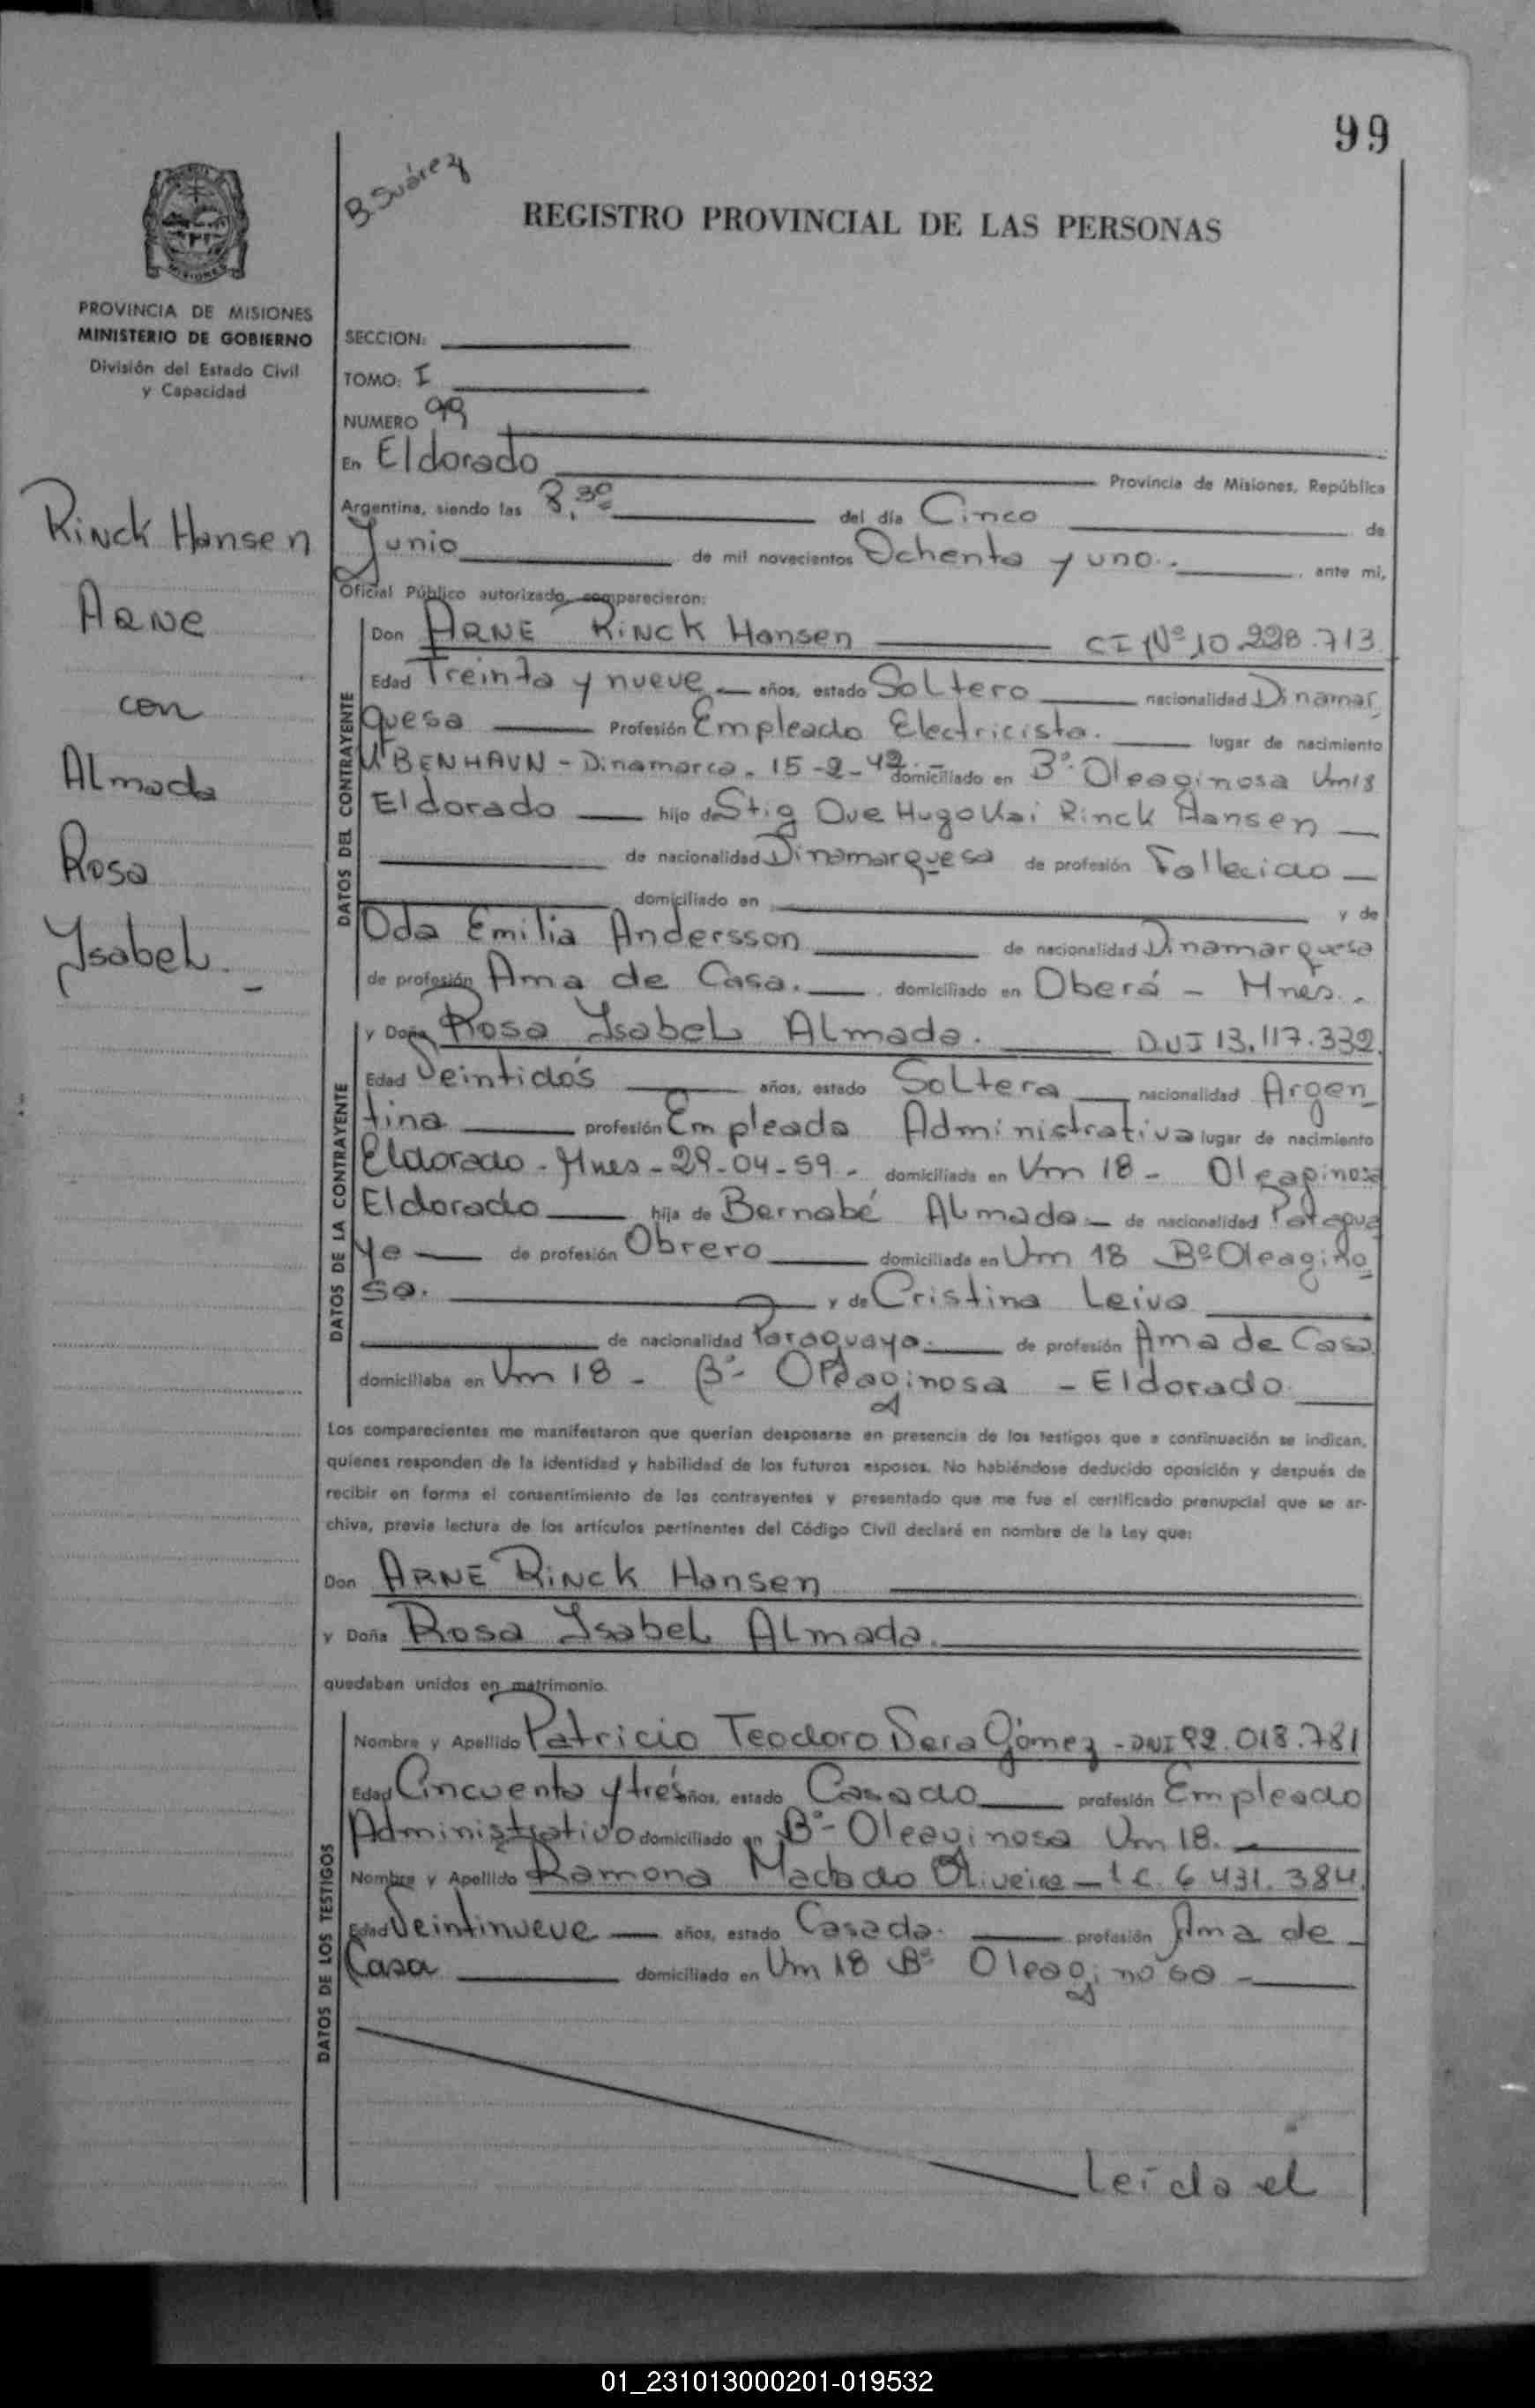 99
B. Suárez
REGISTRO PROVINCIAL DE LAS PERSONAS
MISIONES
PROVINCIA DE MISIONES
MINISTERIO DE GOBIERNO
División del Estado Civil
y Capacidad
SECCION:
TOMO: I
NUMERO 99
En Eldorado Provincia de Misiones, República
Argentina, siendo las 8,30 del día Cinco de
Junio de mil novecientos Ochenta y uno.- ante mi,
Oficial Público autorizado, comparecieron:
Rinck Hansen
Arne
con
Almada
Rosa
Ysabel.-
DATOS DEL CONTRAYENTE
Don ARNE RiNCK Hansen CI Nº 10.228.713
Edad Treinta y nueve años, estado Soltero nacionalidad Dinamar
quesa Profesión Empleado Electricista. lugar de nacimiento
BENHAVN - Dinamarca. 15-2-42.- domiciliado en Bº. Oleaginosa Vm18
Eldorado hijo de Stig Ove Hugo Kai Rinck Hansen
de nacionalidad Dinamarquesa de profesión Fallecido
domiciliado en y de
Oda Emilia Andersson de nacionalidad Dinamarquesa
de profesión Ama de Casa. domiciliado en Oberá - Mnes..
DATOS DE LA CONTRAYENTE
y Doña Rosa Ysabel Almada. D.N.I 13.117.332.
Edad Veintidós años, estado Soltera nacionalidad Argen_
tina profesión Empleada Administrativa lugar de nacimiento
Eldorado - Mnes - 29-04-59.- domiciliada en Vm 18 - Oleaginosa
Eldorado hija de Bernabé Almada - de nacionalidad Paragua
ya de profesión Obrero domiciliada en Vm 18 Bº Oleagino_
sa. y de Cristina Leiva
de nacionalidad Paraguaya. de profesión Ama de Casa.
domiciliaba en Vm 18 - Bº- Oleaginosa - Eldorado.
Los comparecientes me manifestaron que querían desposarse en presencia de los testigos que a continuación se indican,
quienes responden de la identidad y habilidad de los futuros esposos. No habiéndose deducido oposición y después de
recibir en forma el consentimiento de los contrayentes y presentado que me fue el certificado prenupcial que se ar-
chiva, previa lectura de los artículos pertinentes del Código Civil declaré en nombre de la Ley que:
Don ARNE RiNCK Hansen
y Doña Rosa Ysabel Almada.
quedaban unidos en matrimonio.
DATOS DE LOS TESTIGOS
Nombre y Apellido Patricio Teodoro Vera Gómez - DNI 92.018.781
Edad Cincuenta y tres años, estado Casado profesión Empleado
Administrativo domiciliado en Bº- Oleaginosa Vm 18.
Nombre y Apellido Ramona Machado Oliveira - L C. 6 431. 384.
Edad Veintinueve años, estado Casada. profesión Ama de
Casa domiciliado en Vm 18 Bº Oleaginosa -
Leída el
01_231013000201-019532